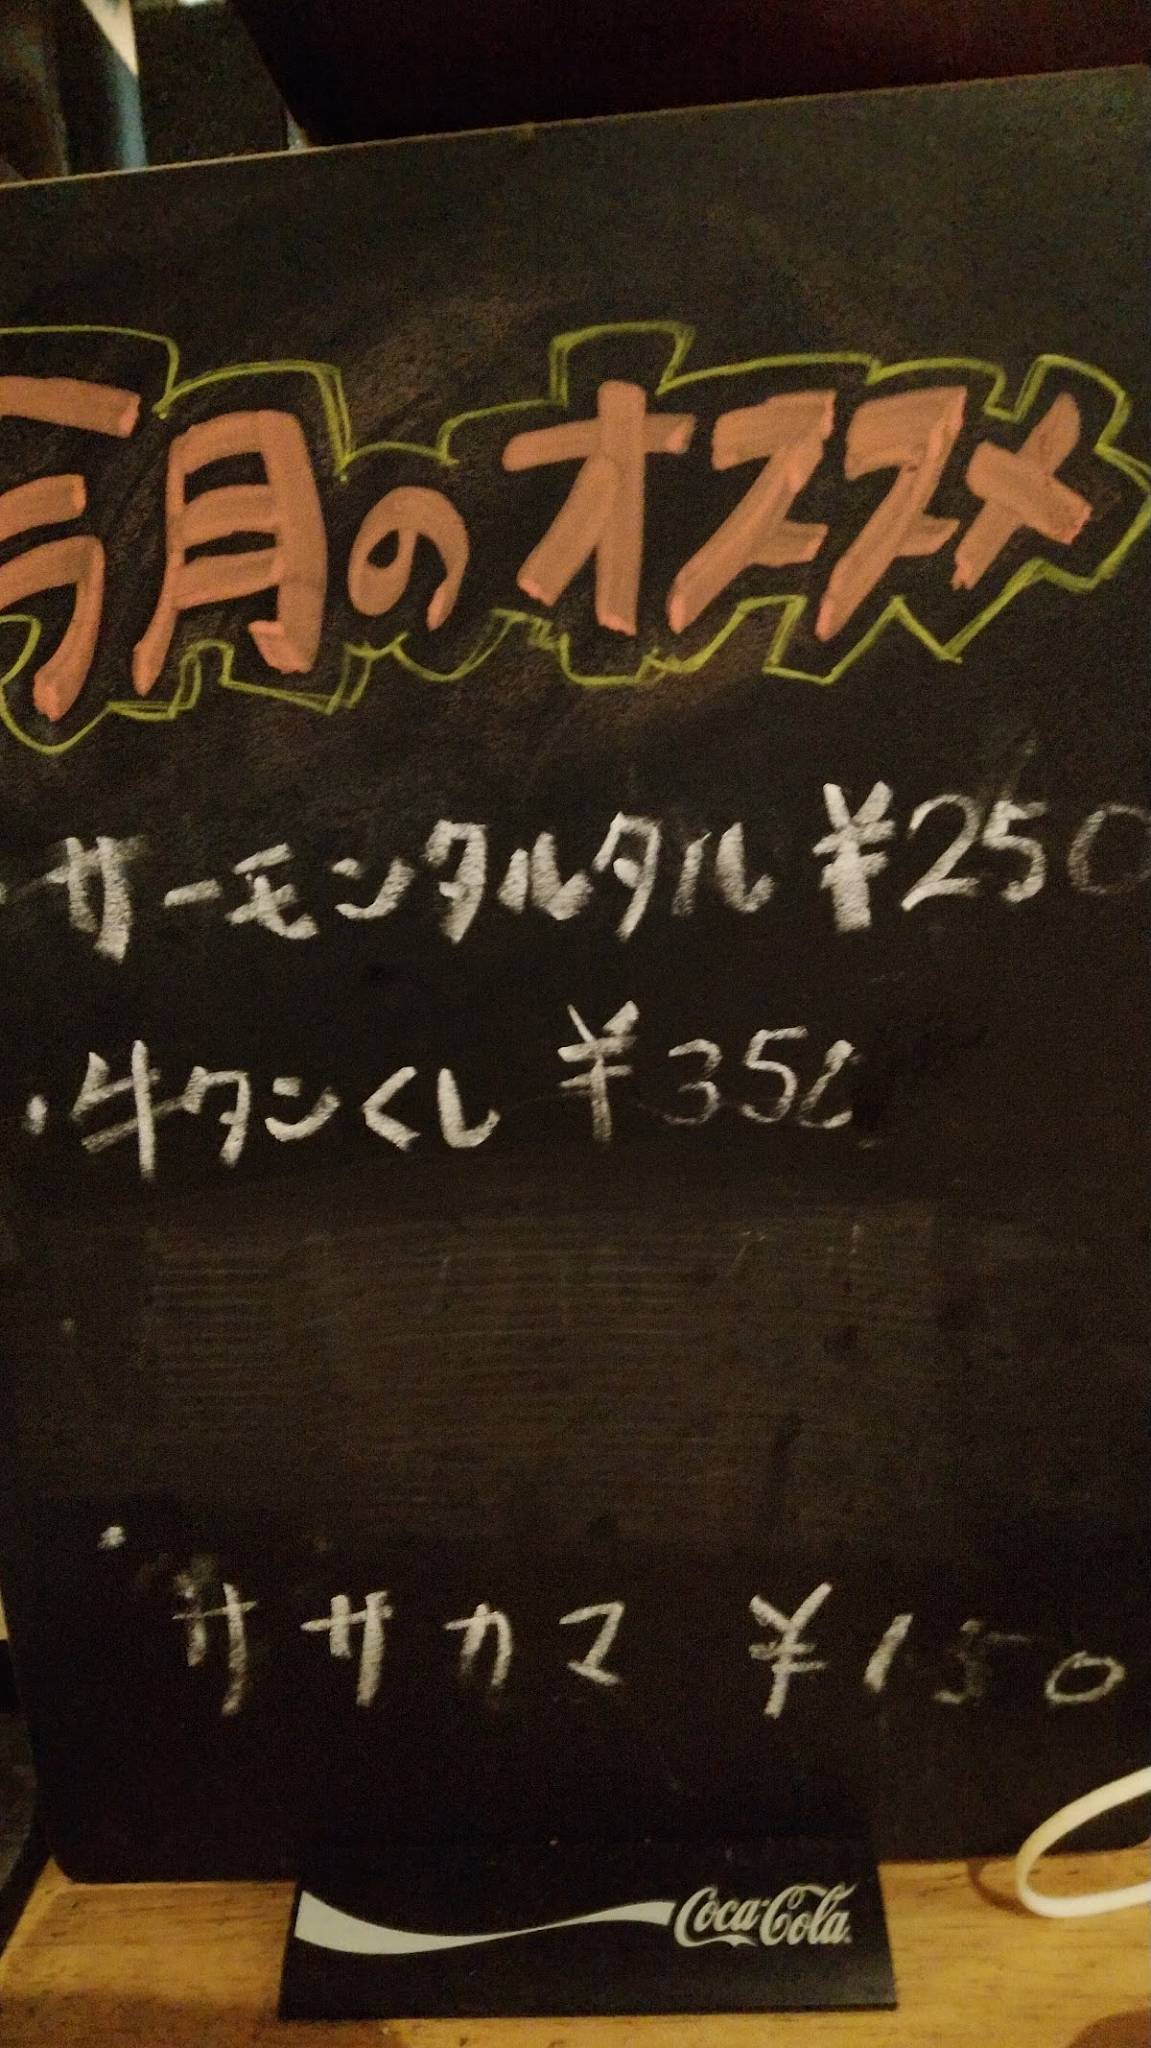 今月のオススメ
・サーモンタルタル ¥250
・牛タンくし ¥350
・ササカマ ¥150
Coca-Cola